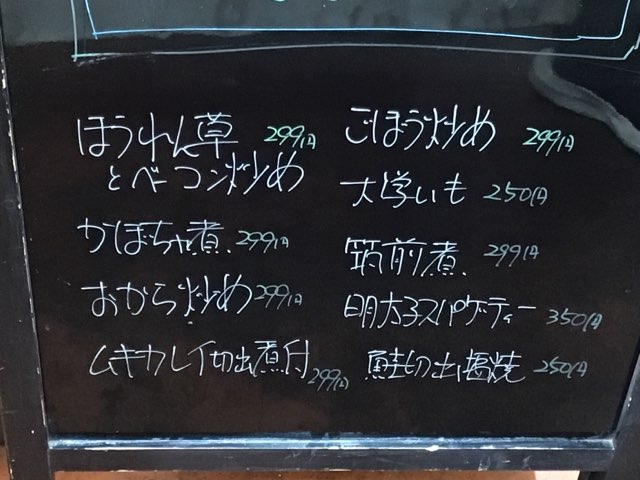 ほうれん草
とベーコン炒め 299円
かぼちゃ煮 299円
おから炒め 299円
ムキカレイ切出煮付 299円
ごぼう炒め 299円
大学いも 250円
筑前煮 299円
明太子スパゲティー 350円
鮭切出し塩焼 250円